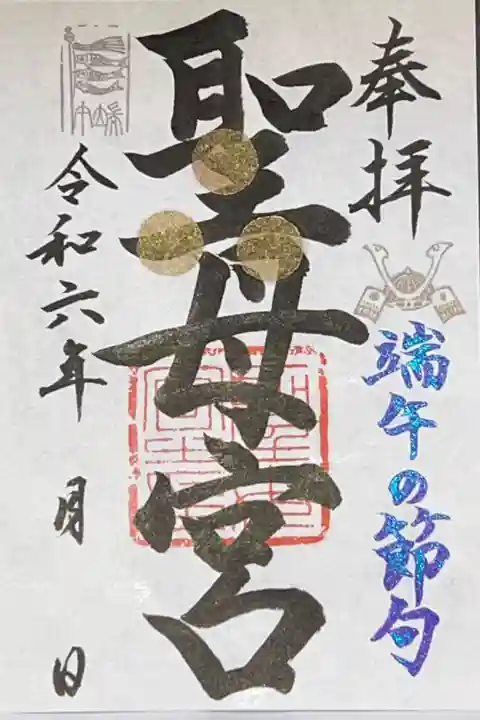 奉拝
端午の節句
聖母宮
令和六年 月 日